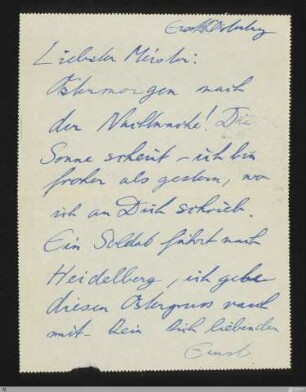 Liebster Meister:
Ostermorgen nach
der Nachtwache! Die
Sonne scheint – ich bin
froher als gestern, wo
ich an Dich schrieb.
Ein Soldat fährt nach
Heidelberg, ich gebe
diesen Ostergruss rasch
mit – Dein Dich liebender
Ernst